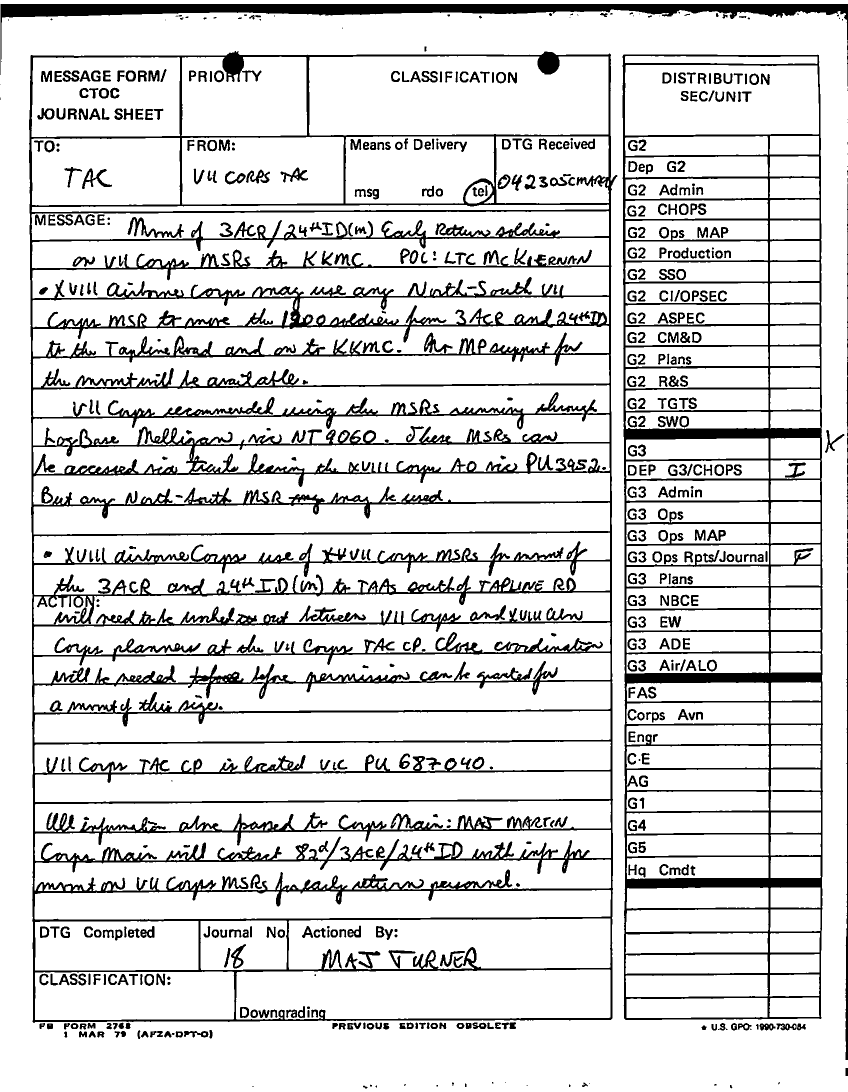 MESSAGE FORM/
CTOC
JOURNAL SHEET
PRIORITY
CLASSIFICATION
TO:
TAC
FROM:
VII CORPS TAC
Means of Delivery
msg rdo tel
DTG Received
042305CMAR91
MESSAGE: Mvmt of 3ACR/24th ID(M) Early Return soldiers
on VII Corps MSRs to KKMC. POC: LTC McKIERNAN
• XVIII Airborne Corps may use any North-South VII
Corps MSR to move the 1200 soldiers from 3ACR and 24th ID
to the Tapline Road and on to KKMC. MP support for
the mvmt will be available.
VII Corps recommended using the MSRs running through
LogBase Melligan, vic NT 9060. These MSRs can
be accessed via trails leaving the XVIII Corps AO vic PU 3952.
But any North-South MSR may be used.
• XVIII Airborne Corps use of VII Corps MSRs for mvmt of
the 3ACR and 24th ID(M) to TAAs south of TAPLINE RD
ACTION:
will need to be worked out between VII Corps and XVIII Abn
Corps planners at the VII Corps TAC CP. Close coordination
will be needed before permission can be granted for
a mvmt of this size.
VII Corps TAC CP is located vic PU 687040.
All information above passed to Corps Main: MAJ MARTIN.
Corps Main will contact 82d/3ACR/24th ID with info for
mvmt on VII Corps MSRs for early return personnel.
DTG Completed
Journal No
18
Actioned By:
MAJ TURNER
CLASSIFICATION:
Downgrading
FB FORM 2768
1 MAR 79 (AFZA-DPT-O)
PREVIOUS EDITION OBSOLETE
DISTRIBUTION
SEC/UNIT
G2
Dep G2
G2 Admin
G2 CHOPS
G2 Ops MAP
G2 Production
G2 SSO
G2 CI/OPSEC
G2 ASPEC
G2 CM&D
G2 Plans
G2 R&S
G2 TGTS
G2 SWO
G3
DEP G3/CHOPS I
G3 Admin
G3 Ops
G3 Ops MAP
G3 Ops Rpts/Journal F
G3 Plans
G3 NBCE
G3 EW
G3 ADE
G3 Air/ALO
FAS
Corps Avn
Engr
C-E
AG
G1
G4
G5
Hq Cmdt
★ U.S. GPO: 1990-730-084